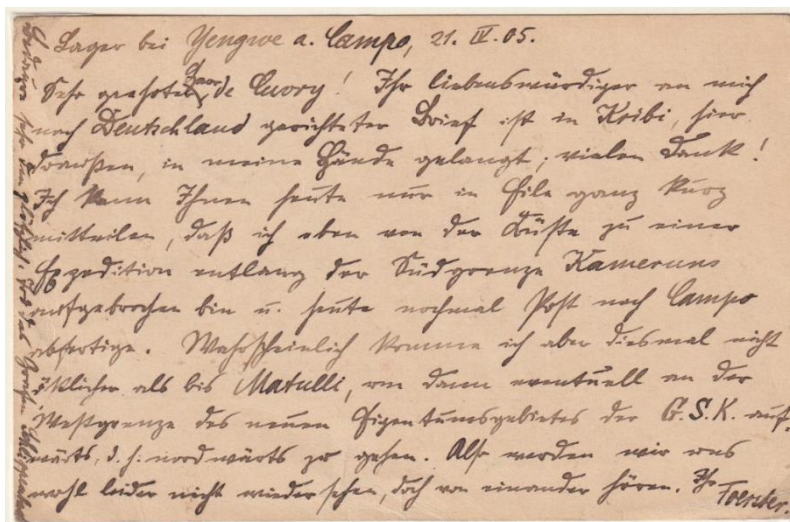 Lager bei Yengwe a. Campo, 21. IV. 05.
Sehr geehrter Herr de Cuvry! Ihr liebenswürdiger an mich
nach Deutschland gerichteter Brief ist in Kribi, hier
draußen, in meine Hände gelangt; vielen Dank!
Ich kann Ihnen heute nur in Eile ganz kurz
mitteilen, daß ich eben von der Küste zu einer
Expedition entlang der Südgrenze Kameruns
aufgebrochen bin u. heute nochmal Post nach Campo
abfertige. Wahrscheinlich komme ich aber diesmal nicht
östlicher als bis Matulli, um dann eventuell an der
Westgrenze des neuen Eigentumsgebietes der G.S.K. auf-
wärts, d. h. nordwärts zu gehen. Also werden wir uns
wohl leider nicht wiedersehen, doch von einander hören. Ihr Foerster.
Bedaure sehr den Tod des Grafen